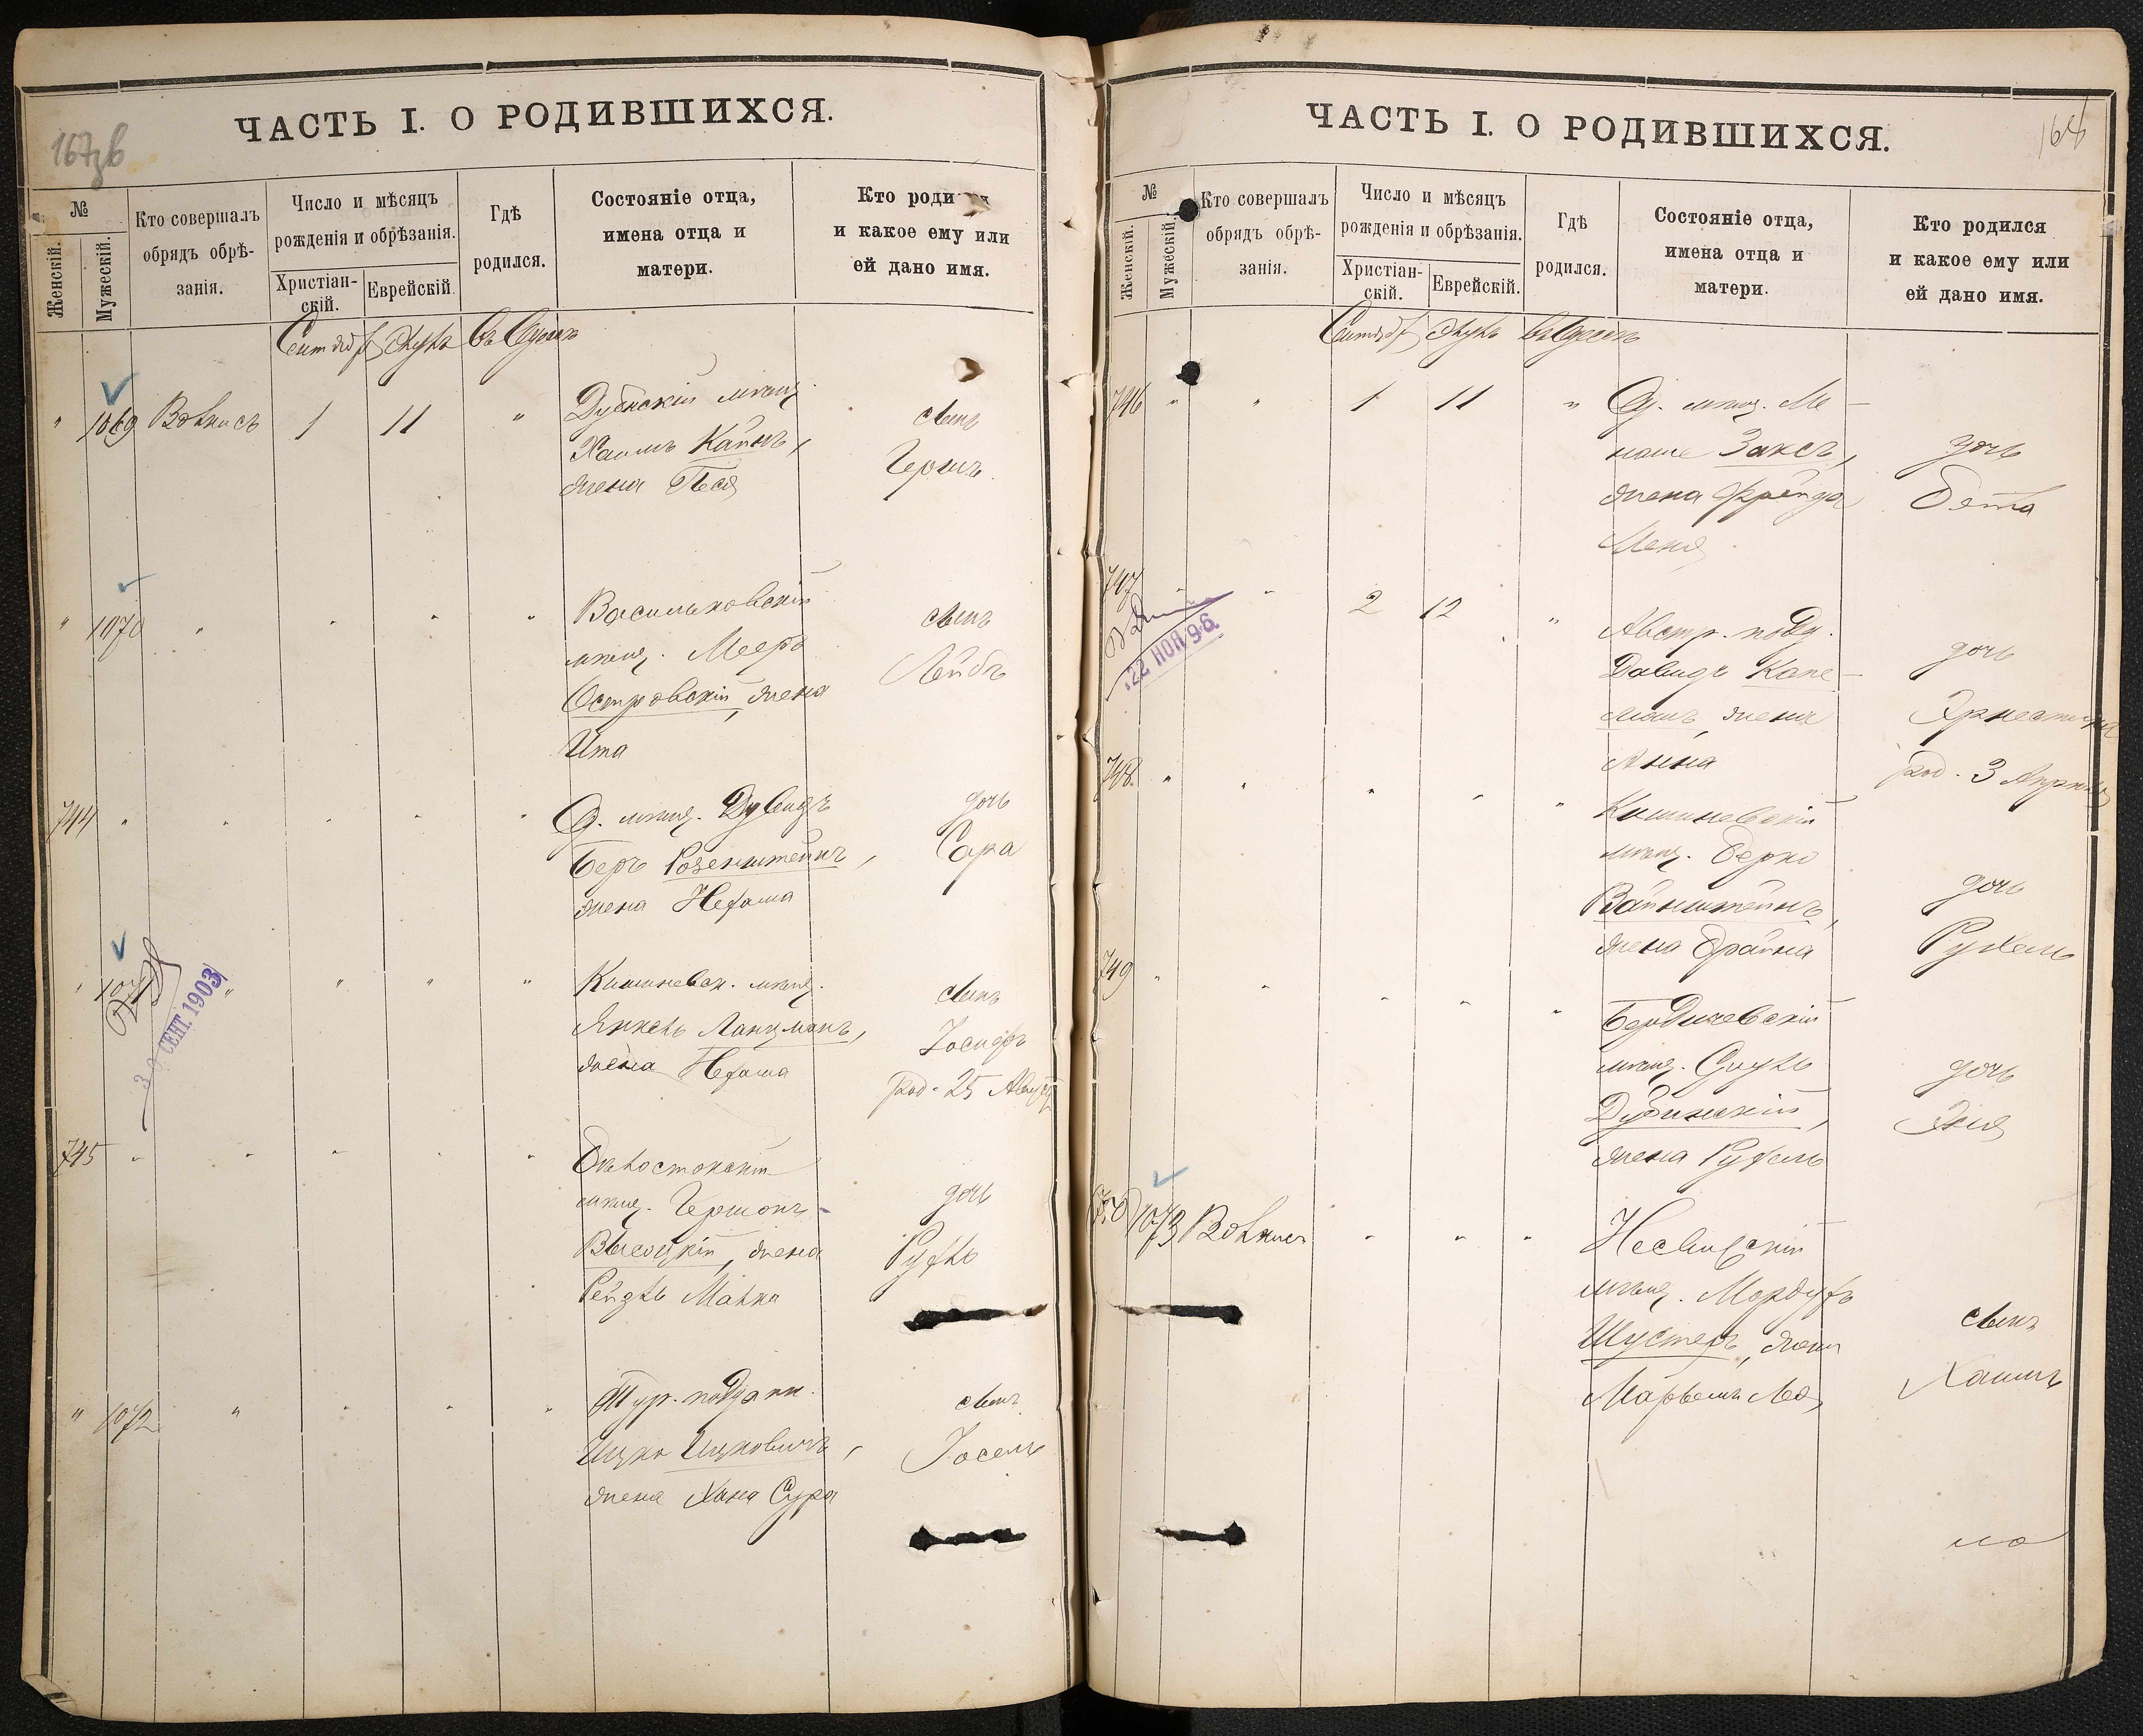 167зв
ЧАСТЬ I. О РОДИВШИХСЯ.
№
Женскій.
Мужескій.
Кто совершалъ
обрядъ обрѣ-
занія.
Число и мѣсяцъ
рожденія и обрѣзанія.
Христіан-
скій.
Еврейскій.
Гдѣ
родился.
Состояніе отца,
имена отца и
матери.
Кто роди
и какое ему или
ей дано имя.
" 1069 1 11 " Дубнскій мѣщ.
Хаимъ
жена Песя
сынъ
Гершъ
" 1070 " " " Васильковскій
мѣщ. Мееръ
Островскій, жена
Ита
сынъ
Лейбъ
744 " " " " " Од. мѣщ. Дувидъ
Беръ Розенштейнъ,
жена Нехама
дочь
Сара
" 1071 " " " " Кишиневск. мѣщ.
Янкель Ланцманъ,
жена Нехама
сынъ
Іосифъ
род. 25 Августа
30 СЕНТ. 1903
745 " " " " " Бѣлостокскій
мѣщ. Гершонъ
Высоцкій, жена
Рейзль Малка
дочь
Рухль
" 1072 " " " " Тур. поддан.
Ицко Ицковичъ,
жена Хана Сура
сынъ
Іосель
168
ЧАСТЬ I. О РОДИВШИХСЯ.
№
Женскій.
Мужескій.
Кто совершалъ
обрядъ обрѣ-
занія.
Число и мѣсяцъ
рожденія и обрѣзанія.
Христіан-
скій.
Еврейскій.
Гдѣ
родился.
Состояніе отца,
имена отца и
матери.
Кто родился
и какое ему или
ей дано имя.
746 " " 1 11 " Од. мѣщ. Ме-
наше Заксъ,
жена Фрейда
Меня
дочь
Бета
747 " 2 12 " Австр. подд.
Давидъ Капе-
жена
Анна
дочь
Эрнестина
род. 3 Апрѣля
22 НОЯ 96
748. " " " " " Кишиневскій
мѣщ. Берко
Вайнштейнъ,
жена Брайна
дочь
Рухель
749 " " " " " Бердичевскій
мѣщ.
Дубинскій,
жена Рухель
дочь
Эня
1073 " " " Несвижскій
мѣщ. Мордухъ
Шустеръ, жена
сынъ
Хаимъ